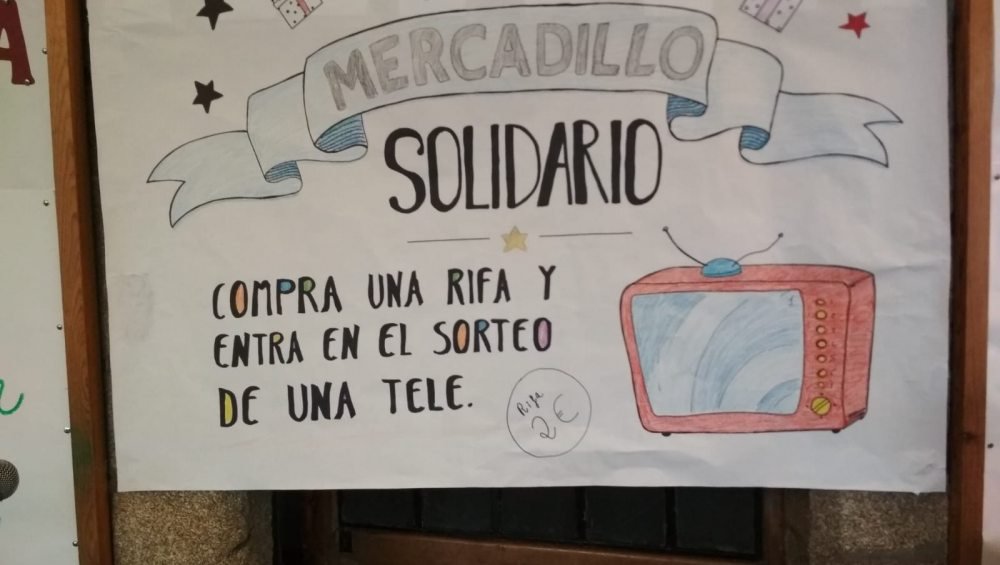 MERCADILLO
SOLIDARIO
COMPRA UNA RIFA Y
ENTRA EN EL SORTEO
DE UNA TELE.
Rifa
2€
A